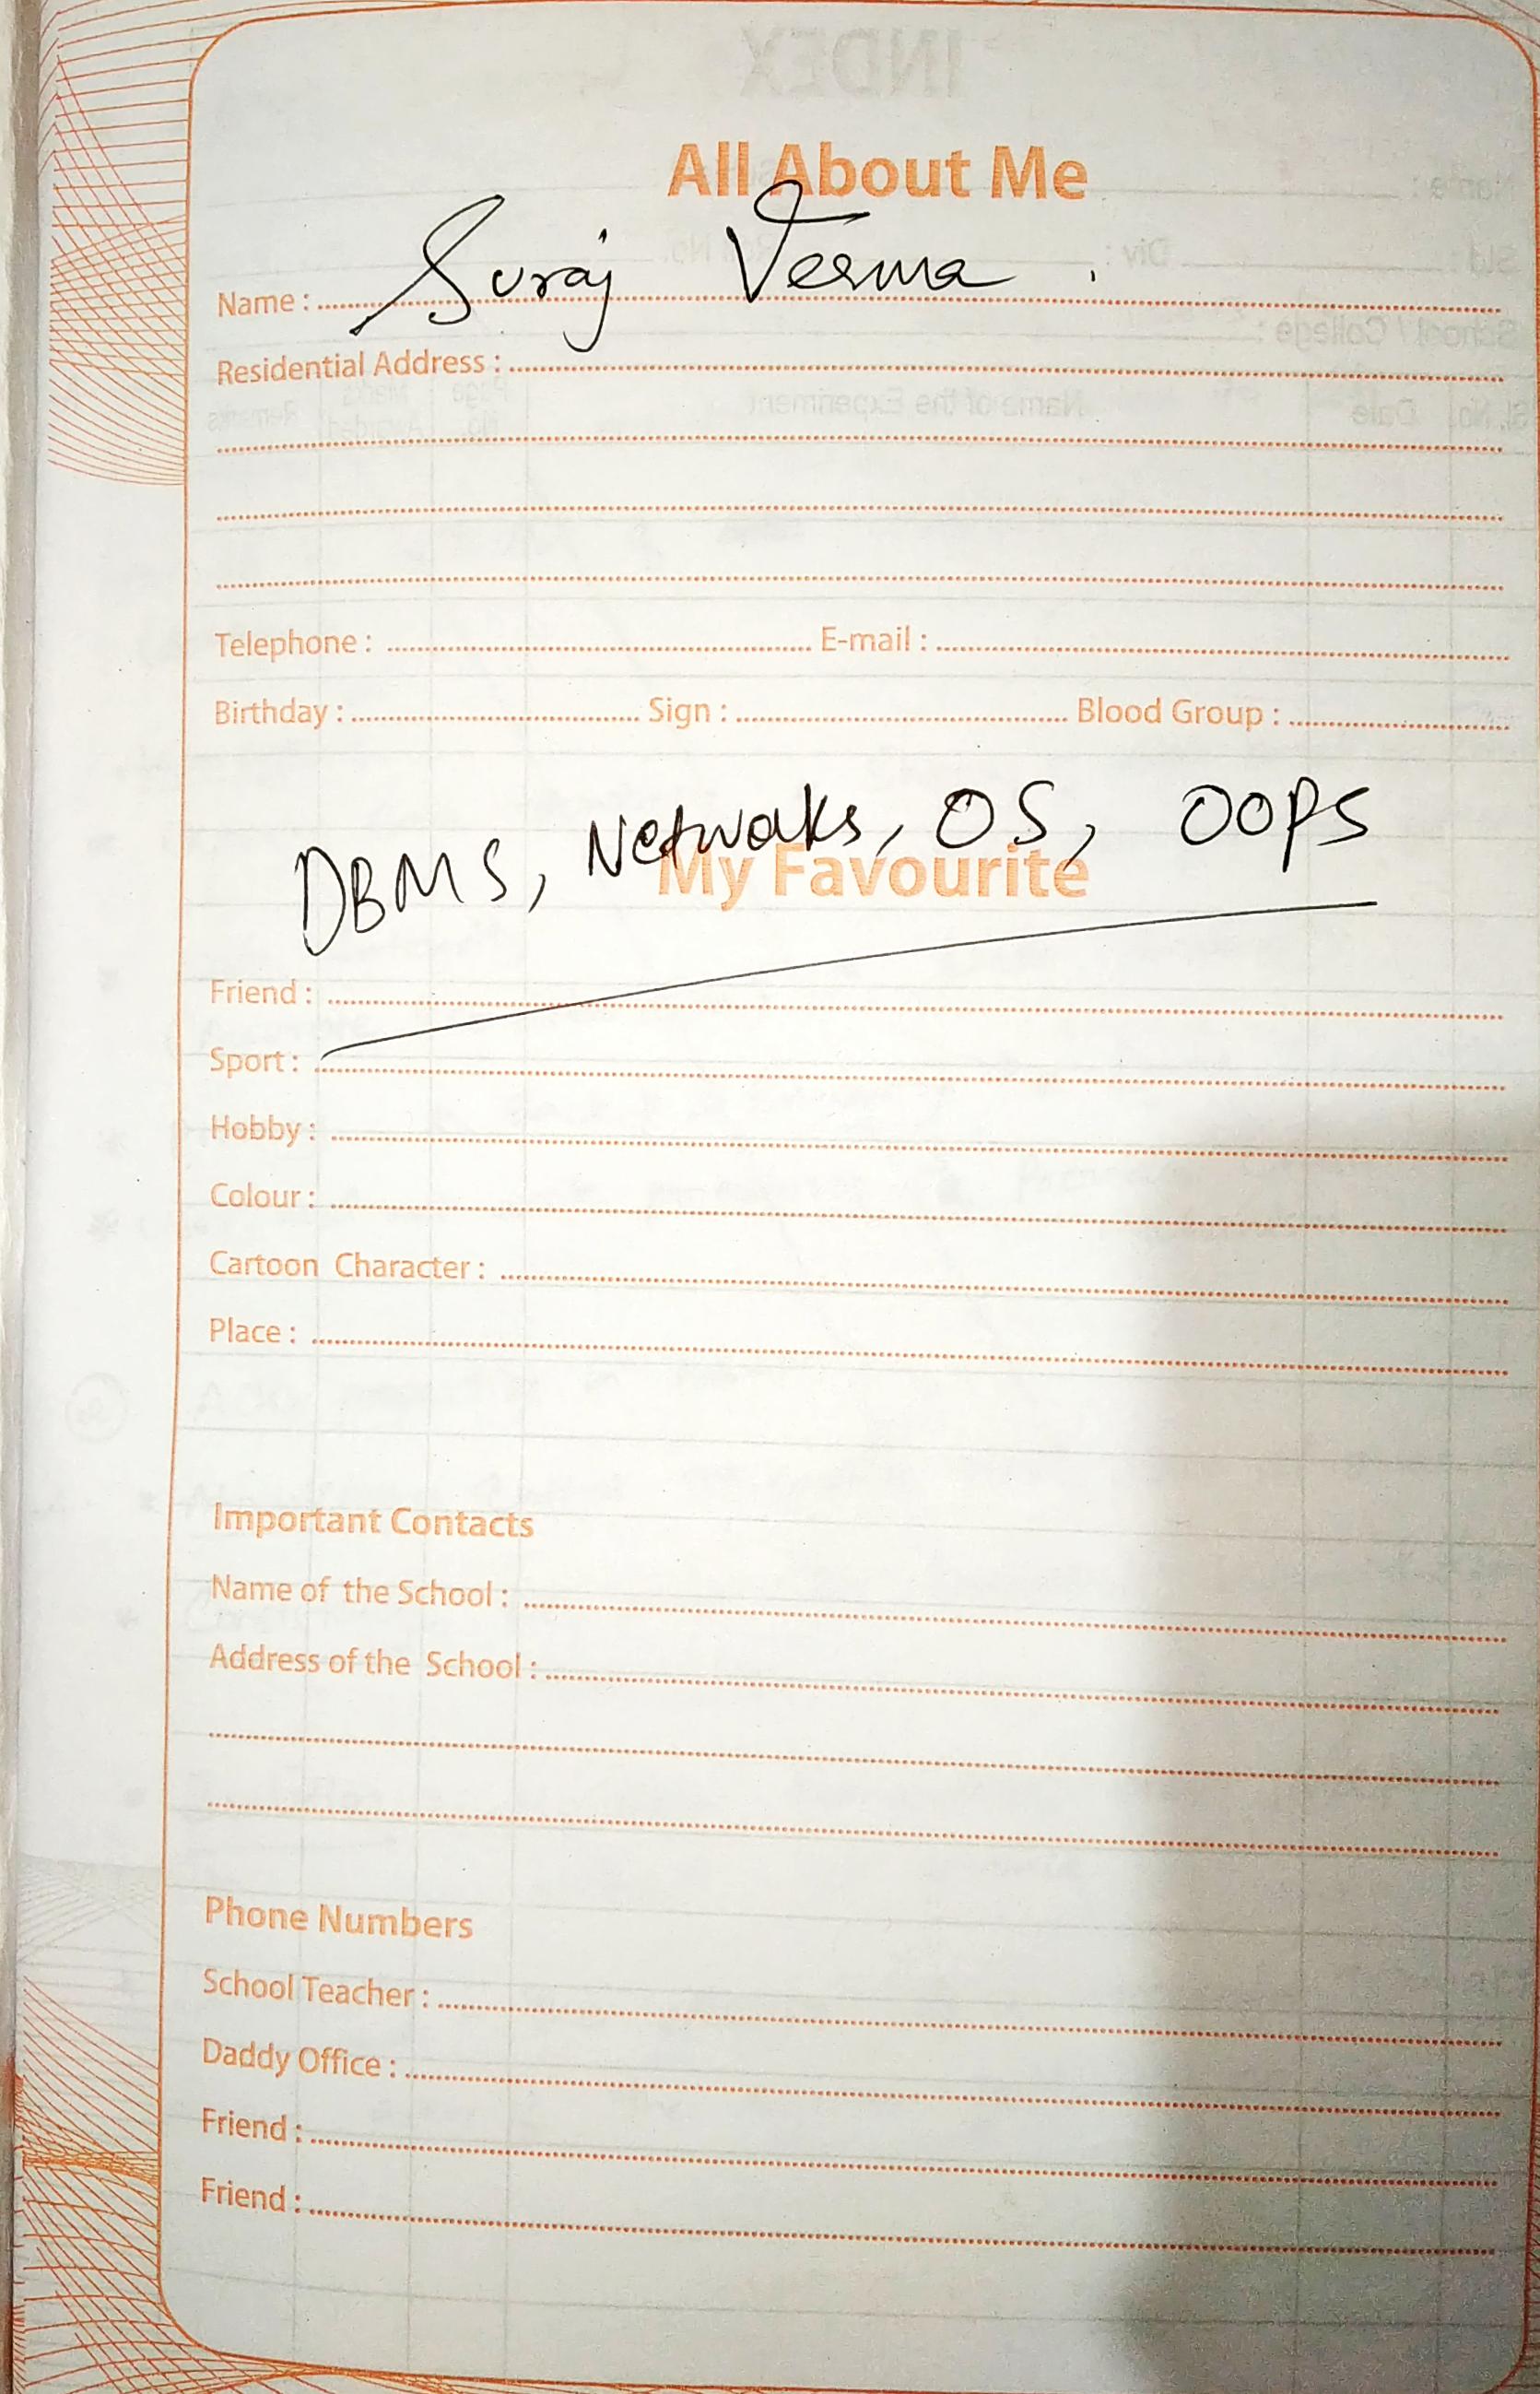 All About Me
Name : Suraj Verma .
Residential Address :
Telephone : E-mail :
Birthday : Sign : Blood Group :
DBMS, Netwoks, OS, OOPS
My Favourite
Friend :
Sport :
Hobby :
Colour :
Cartoon Character :
Place :
Important Contacts
Name of the School :
Address of the School :
Phone Numbers
School Teacher :
Daddy Office :
Friend :
Friend :